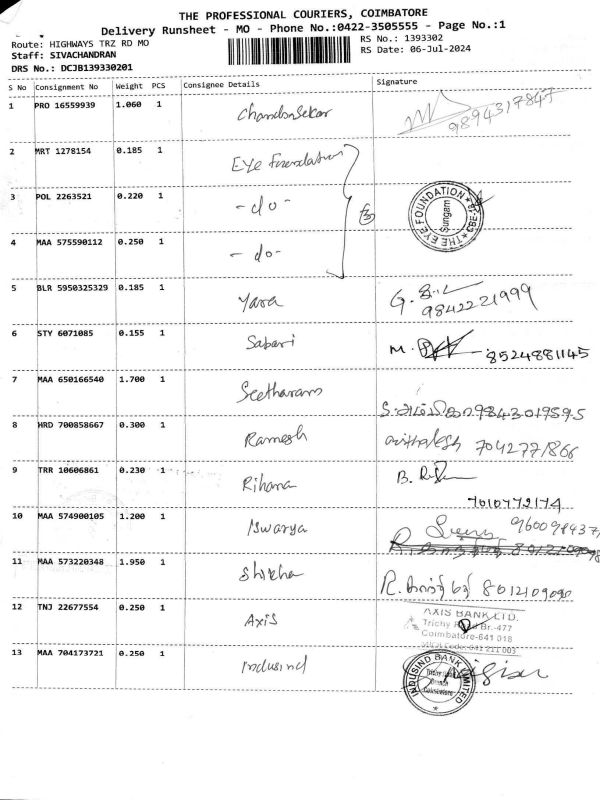 THE PROFESSIONAL COURIERS, COIMBATORE
Delivery Runsheet - MO - Phone No.:0422-3505555 - Page No.:1
Route: HIGHWAYS TRZ RD MO
RS No.: 1393302
Staff: SIVACHANDRAN
RS Date: 06-Jul-2024
DRS No.: DCJB139330201
S No Consignment No Weight PCS Consignee Details Signature
1 PRO 16559939 1.060 1 Chandrasekar
9894317847
2 MRT 1278154 0.185 1 Eye Foundation
3 POL 2263521 0.220 1 -do-
THE EYE FOUNDATION
Sungam
4 MAA 575590112 0.250 1 -do-
5 BLR 5950325329 0.185 1 Yara
9842221999
6 STY 6071085 0.155 1 Sabari M. 8524881145
7 MAA 650166540 1.700 1 Seetharam 9843019595
8 HRD 700858667 0.300 1 Ramesh 7042771866
9 TRR 10606861 0.230 1 Rihana B.
7010772174
10 MAA 574900105 1.200 1 Iswarya
11 MAA 573220348 1.950 1 Shikha R.
12 TNJ 22677554 0.250 1 Axis
AXIS BANK LTD.
Trichy Road Br.-477
Coimbatore-641 018
13 MAA 704173721 0.250 1 Indusind
INDUSIND BANK LIMITED
Trichy Road
Branch
Coimbatore